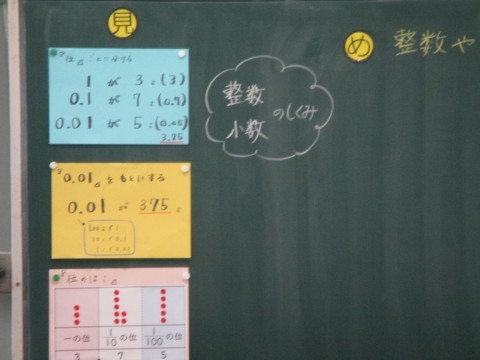 見
位ごとに分ける
1が3:(3)
0.1が7:(0.7)
0.01が5:(0.05)
3.75
整数
小数
のしくみ
め
整数や
0.01をもとにする
0.01が375
位のはこ
一の位
1/10の位
1/100の位
3 7 5